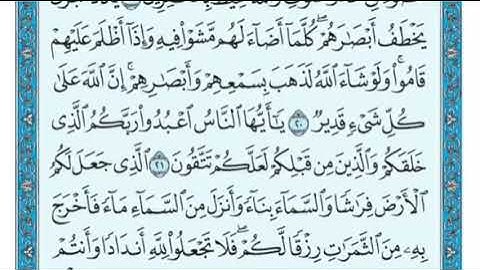 يَخْطَفُ أَبْصَٰرَهُمْ ۖ كُلَّمَآ أَضَآءَ لَهُم مَّشَوْا۟ فِيهِ وَإِذَآ أَظْلَمَ عَلَيْهِمْ
قَامُوا۟ ۚ وَلَوْ شَآءَ ٱللَّهُ لَذَهَبَ بِسَمْعِهِمْ وَأَبْصَٰرِهِمْ ۚ إِنَّ ٱللَّهَ عَلَىٰ
كُلِّ شَىْءٍ قَدِيرٌ ٢٠ يَٰٓأَيُّهَا ٱلنَّاسُ ٱعْبُدُوا۟ رَبَّكُمُ ٱلَّذِى
خَلَقَكُمْ وَٱلَّذِينَ مِن قَبْلِكُمْ لَعَلَّكُمْ تَتَّقُونَ ٢١ ٱلَّذِى جَعَلَ لَكُمُ
ٱلْأَرْضَ فِرَٰشًا وَٱلسَّمَآءَ بِنَآءً وَأَنزَلَ مِنَ ٱلسَّمَآءِ مَآءً فَأَخْرَجَ
بِهِۦ مِنَ ٱلثَّمَرَٰتِ رِزْقًا لَّكُمْ ۖ فَلَا تَجْعَلُوا۟ لِلَّهِ أَندَادًا وَأَنتُمْ